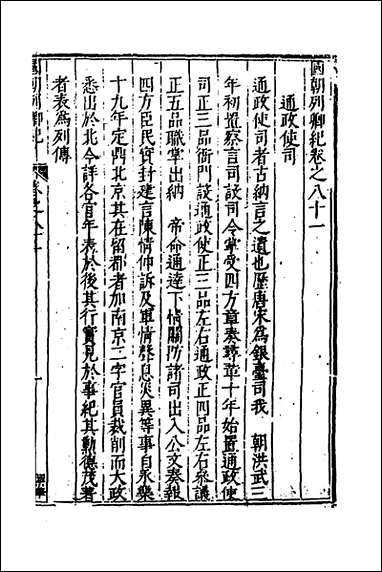 國朝列卿紀卷之八十一
通政使司
通政使司者古納言之遺也歷唐宋為銀臺司我　朝洪武三
年初置察言司設司令掌受四方章奏尋革十年始置通政使
司正三品衙門設通政使正三品左右通政正四品左右參議
正五品職掌出納　帝命通達下情關防諸司出入公文奏報
四方臣民實封建言陳情伸訴及軍情聲息災異等事自永樂
十九年定鼎北京其在留都者加南京二字官員裁削而大政
悉出於北今詳各官年表於後其行實見於事紀其勳德茂著
者表為列傳